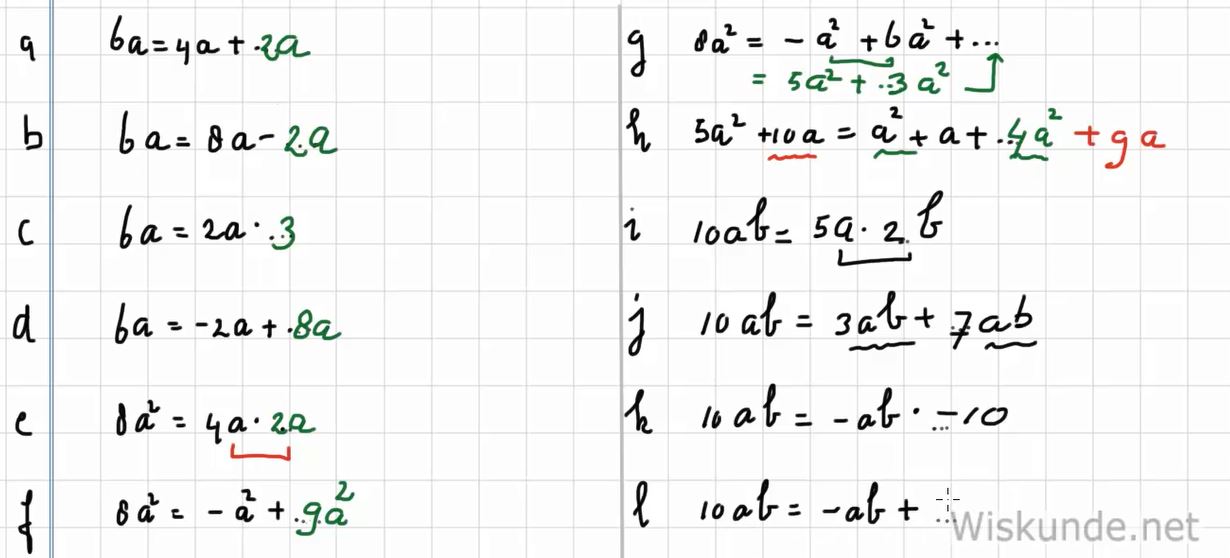 a 6a = 4a + ..2a
b 6a = 8a - 2.a
c 6a = 2a · .3
d 6a = -2a + .8a
e 8a² = 4a · 2.a
f 8a² = -a² + ..9a²
g 8a² = -a² + 6a² + ...
= 5a² + ..3a²
h 5a² + 10a = a² + a + ..4a² + 9a
i 10ab = 5a · 2.b
j 10ab = 3ab + .7ab
k 10ab = -ab · ...-10
l 10ab = -ab + ...
Wiskunde.net